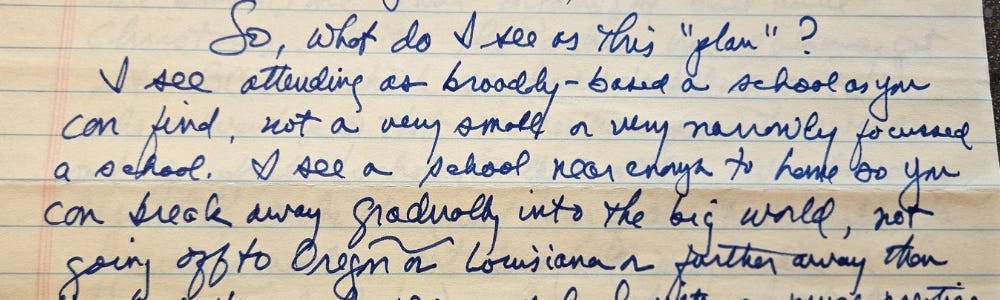 So, what do I see as this "plan"?
I see attending as broadly-based a school as you
can find, not a very small or very narrowly focussed
a school. I see a school near enough to home so you
can break away gradually into the big world, not
going off to Oregon or Louisiana or further away than